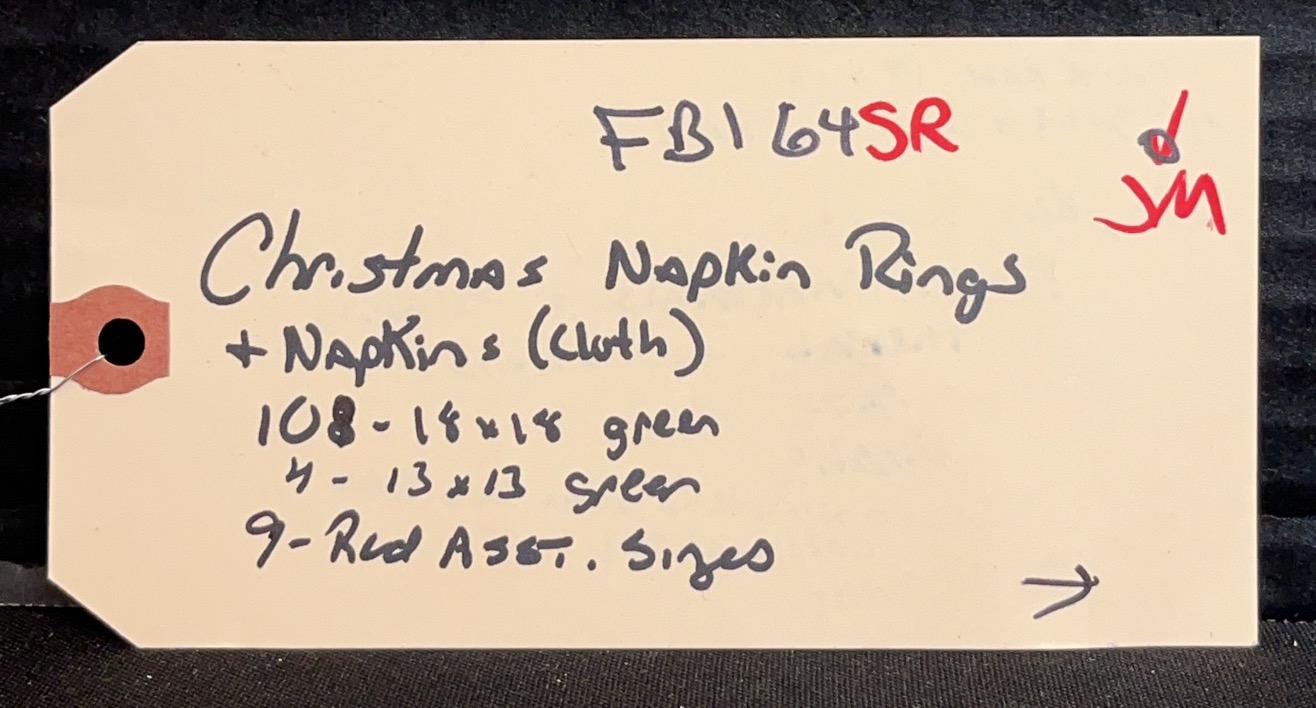 FB164SR
JM
Christmas Napkin Rings
+ Napkins (Cloth)
108 - 18x18 green
4 - 13x13 green
9 - Red Asst. Sizes
→